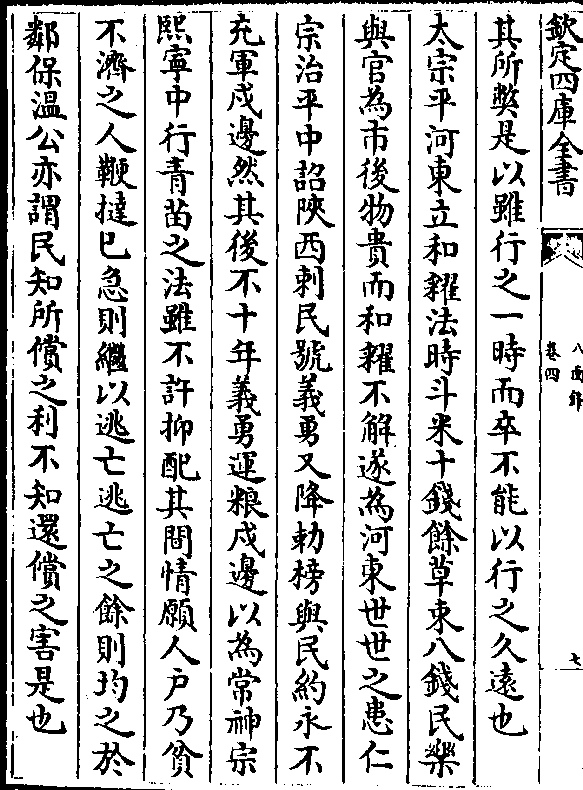 欽定四庫全書
八面鋒
卷四
七
其所弊是以雖行之一時而卒不能以行之久遠也
太宗平河東立和糴法時斗米十錢餘草束八錢民樂
與官為市後物貴而和糴不解遂為河東世世之患仁
宗治平中詔陜西刺民號義勇又降勅榜與民約永不
充軍戍邊然其後不十年義勇運粮戍邊以為常神宗
熙寧中行青苗之法雖不許抑配其間情願人户乃貧
不濟之人鞭撻已急則繼以逃亡逃亡之餘則均之於
鄰保温公亦謂民知所償之利不知還償之害是也